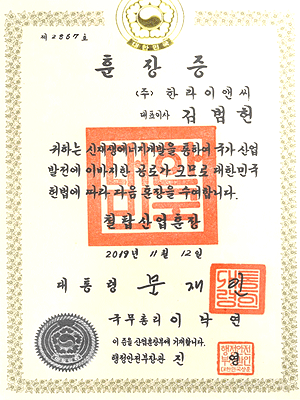 대한민국
제 2867 호
훈장증
(주) 한라이앤씨
대표이사 김범헌
귀하는 신재생에너지개발을 통하여 국가 산업
발전에 이바지한 공로가 크므로 대한민국
헌법에 따라 다음 훈장을 수여합니다.
철탑산업훈장
2019년 11월 12일
대통령 문재인
국무총리 이낙연
이 증을 산업훈장부에 기재합니다.
행정안전부장관 진영